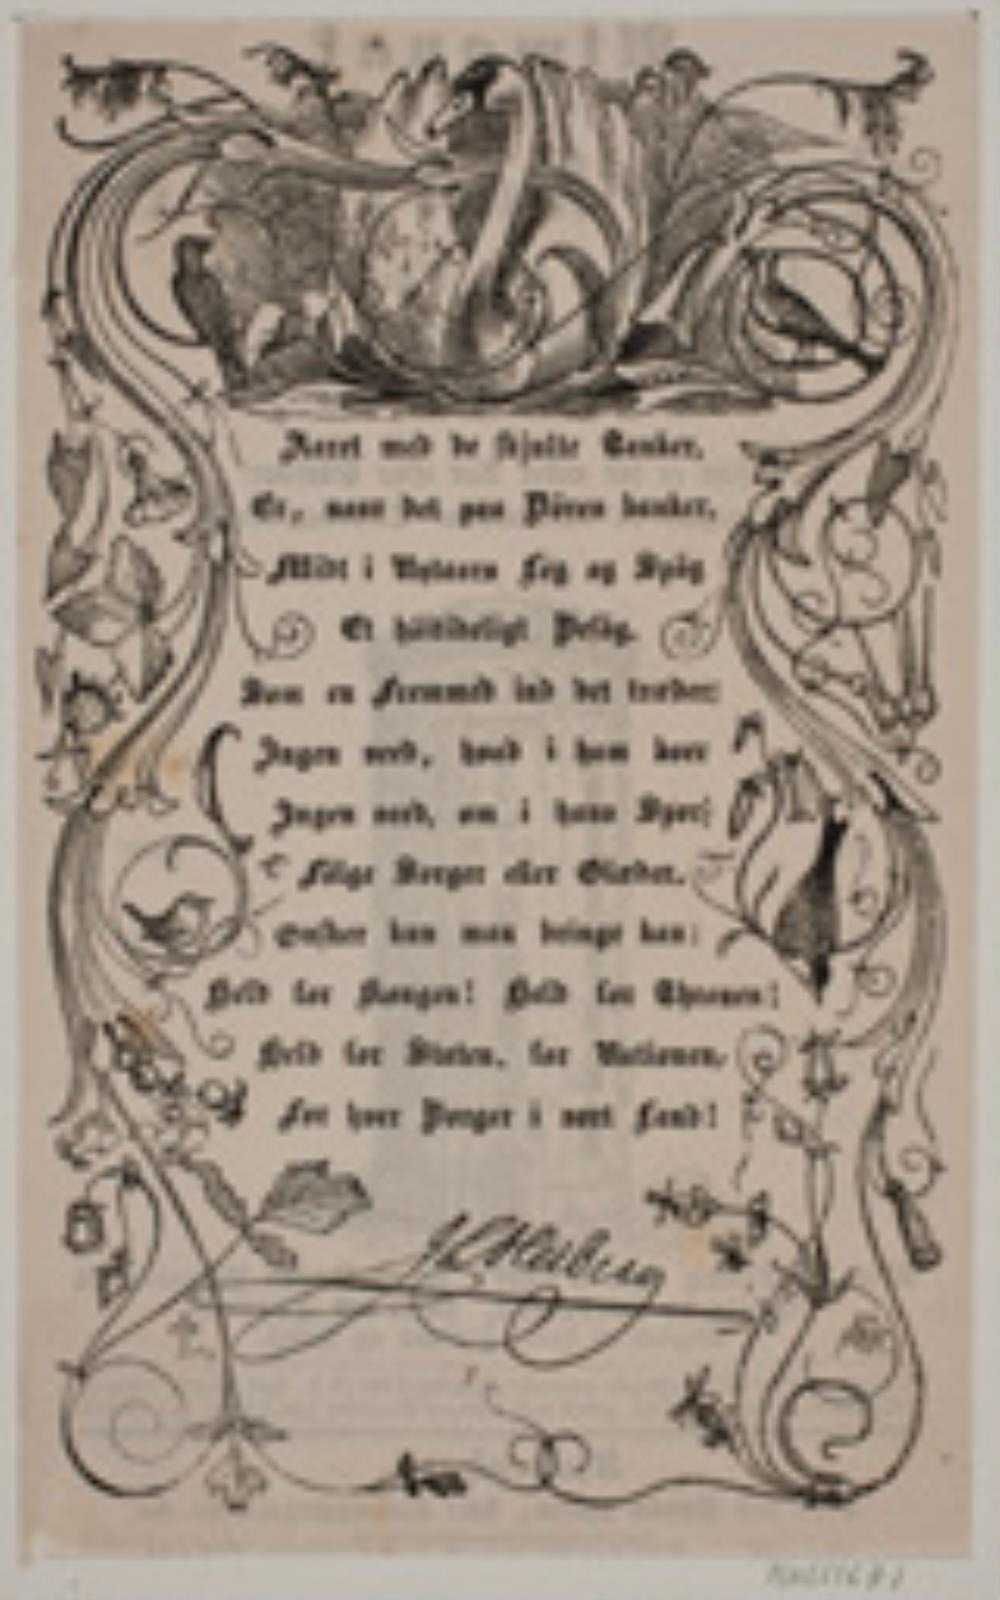 Aaret med de skjulte Tanker,
Er, naar det paa Dören banker,
Midt i Nytaars Leg og Spög
Et höitideligt Besög.
Som en Fremmed ind det træder:
Ingen veed, hvad i ham boer
Ingen veed, om i hans Spor
Fölge Sorger eller Glæder.
Önsker kun man bringe kan:
Held for Kongen! Held for Thronen!
Held for Staten, for Nationen,
For hver Borger i vort Land!
J L Heiberg